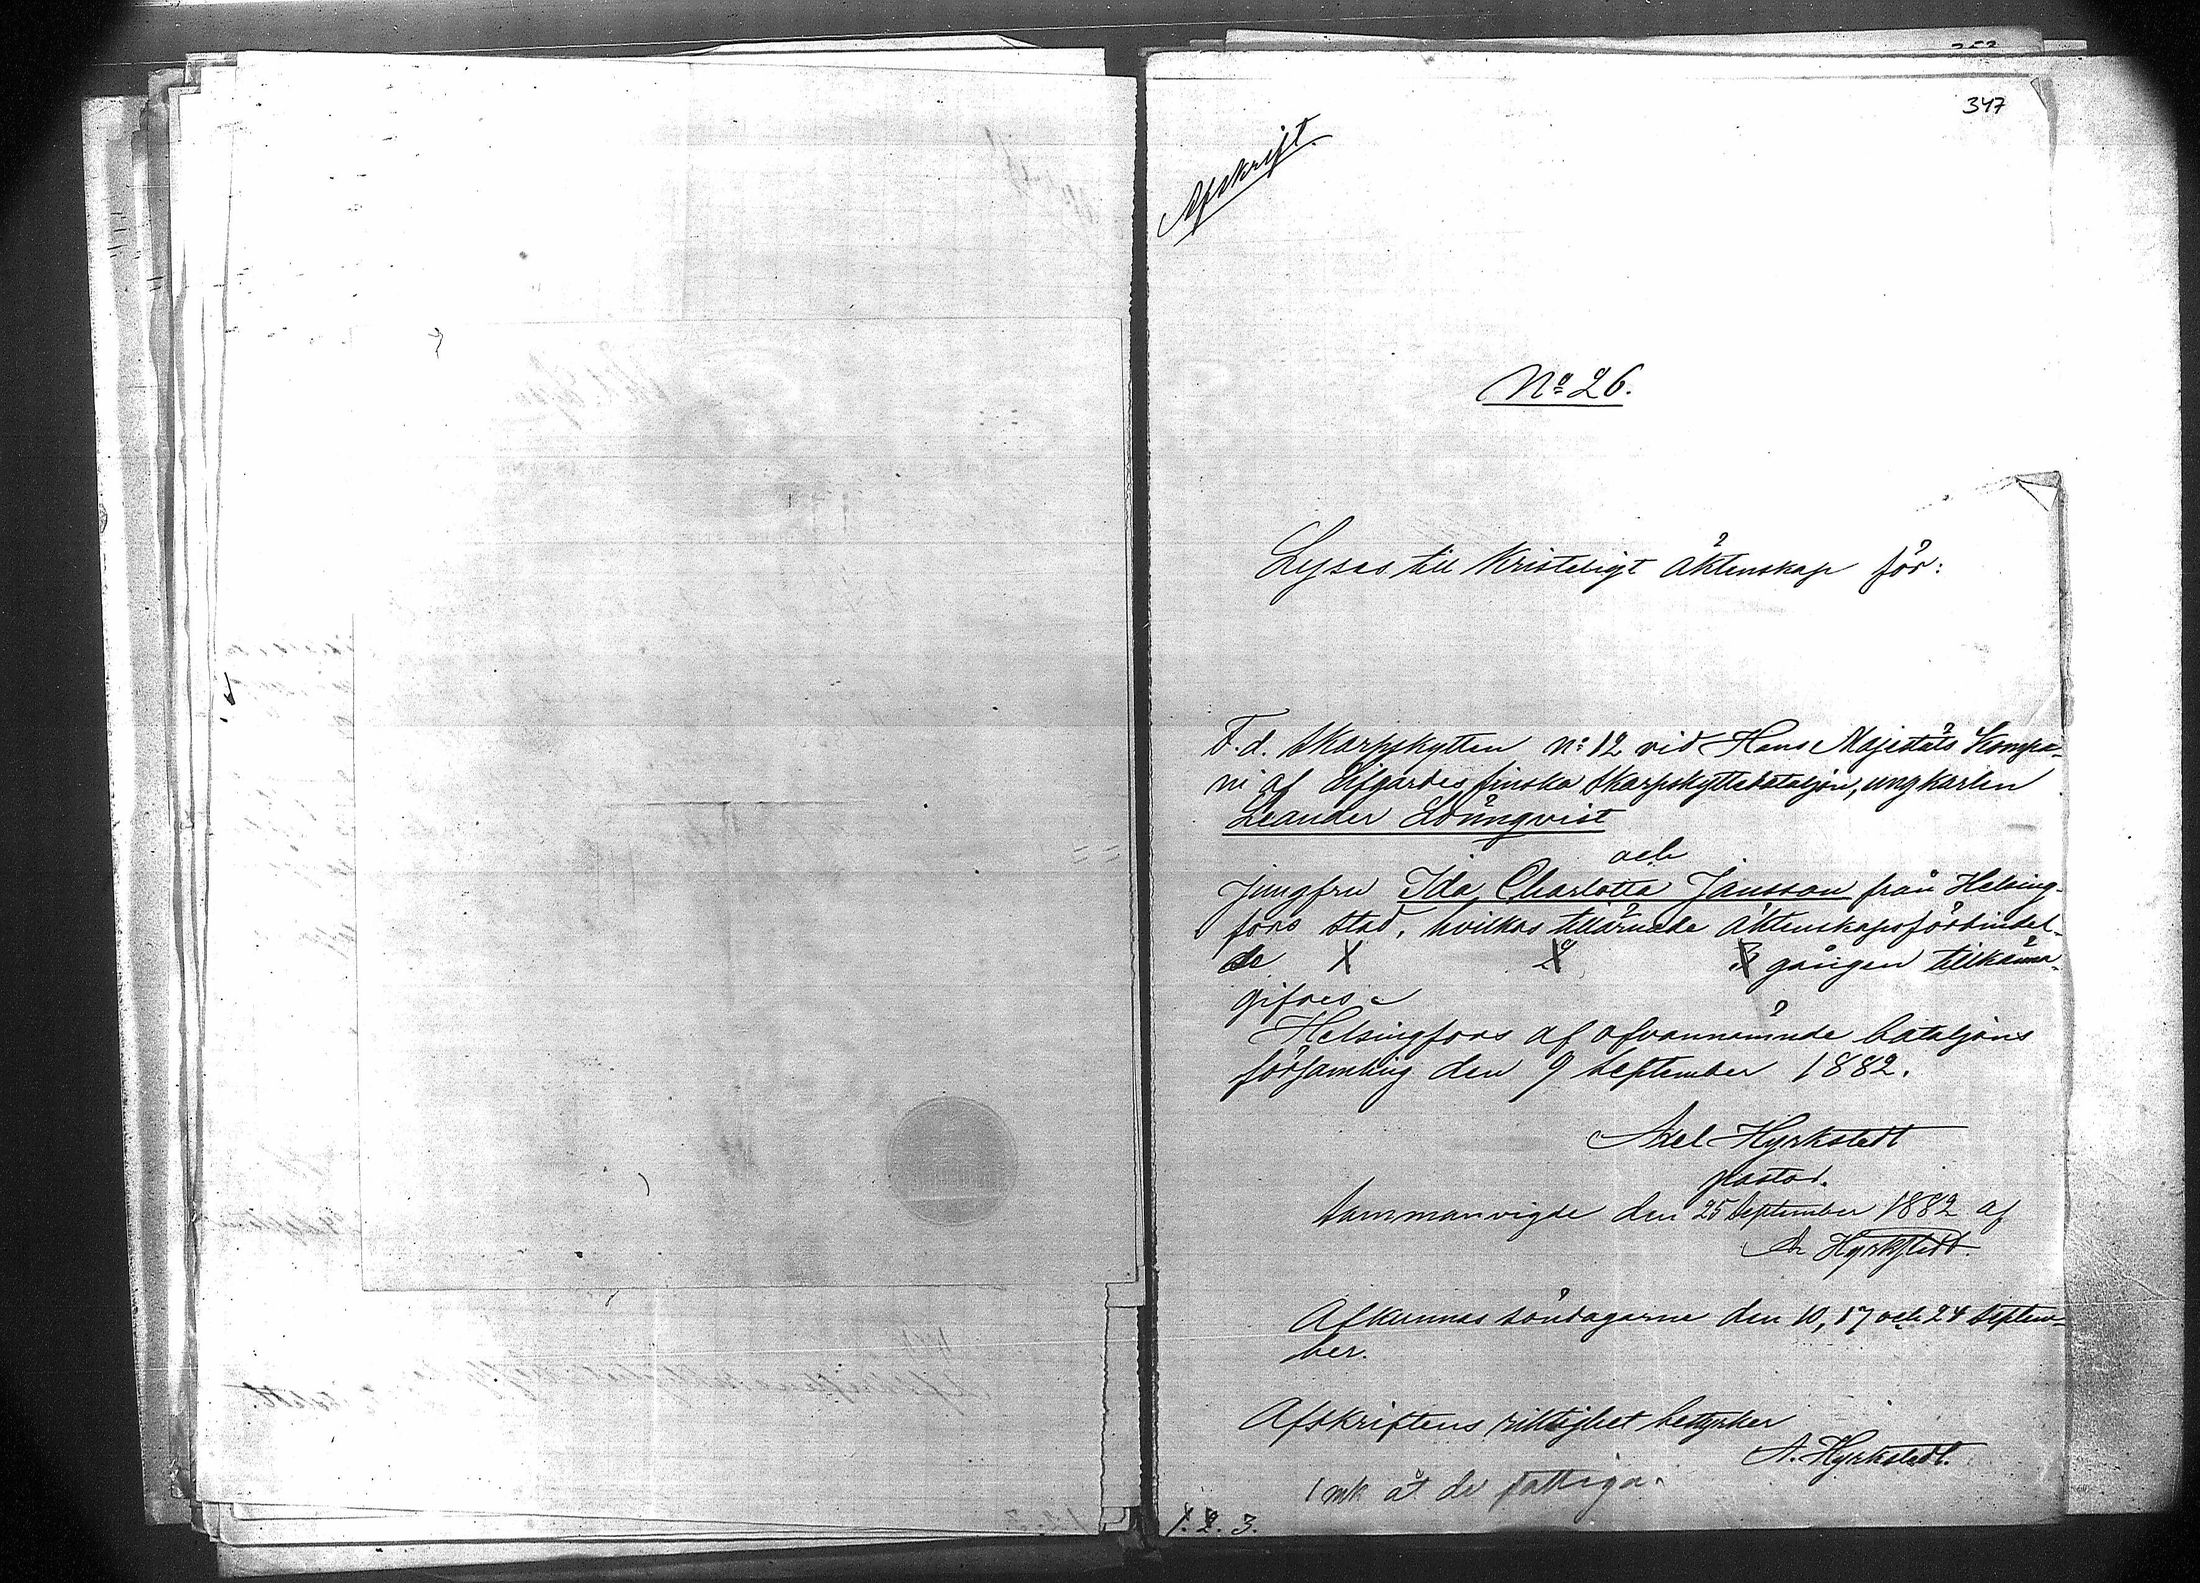 347
Afskrift.
No 26.
Lysas till kristeligt äktenskap för:
F. d. skarpskytten No 12 vid Hans Majestäts kompa-
ni af Lifgardes finska skarpskyttebataljon, ungkarlen
Leander Löüngvist
och
jungfru Ida Charlotta Jansson från Helsing-
fors stad, hvilkas tillärnade äktenskapsförbindel-
se 1 2 3 gången tillkänna-
gifves.
Helsingfors af ofvannämnde bataljons
församling den 9 September 1882.
Axel Hyrkstedt
pastor.
Sammanvigde den 25 September 1882 af
A. Hyrkstedt.
Afkunnas söndagarne den 10, 17 och 24 Septem-
ber.
Afskriftens riktighet bestyrker
A. Hyrkstedt.
1 mk åt de fattiga.
1. 2. 3.